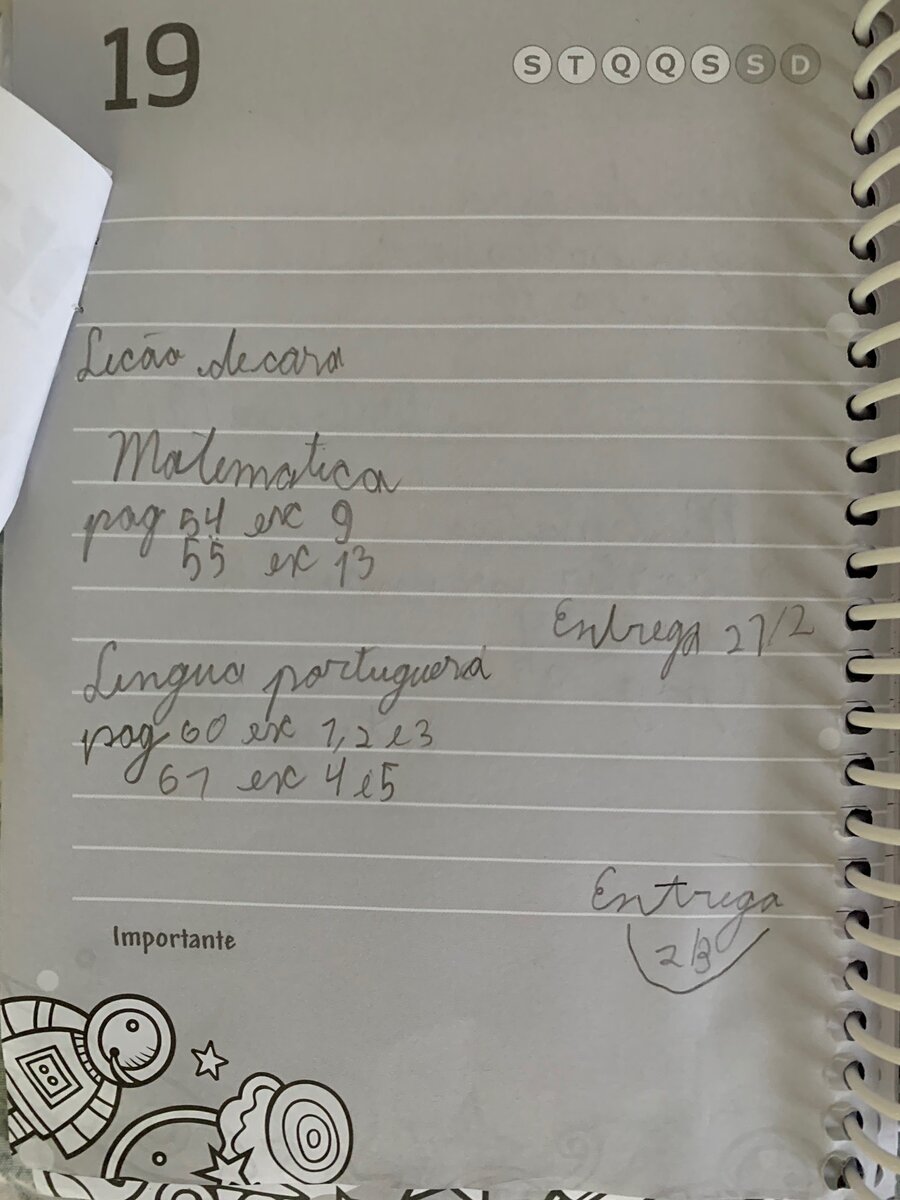 19
S T Q Q S S D
Lição de casa
Matematica
pag 54 ex 9
55 ex 13
Entrega 27/2
Lingua portuguesa
pag 60 ex 1, 2 e 3
61 ex 4 e 5
Entrega
2/3
Importante